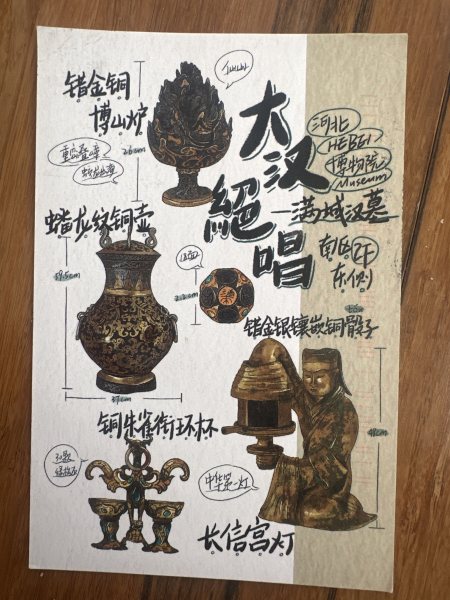 错金铜
博山炉
仙山
26cm
大汉
絕唱
—满城汉墓
河北
HEBEI
博物院
Museum
南区2F
东侧
蟠龙纹铜壶
59.5cm
37cm
18面
2.2cm
错金银镶嵌铜骰子
铜朱雀衔环杯
中华第一灯
48cm
长信宫灯